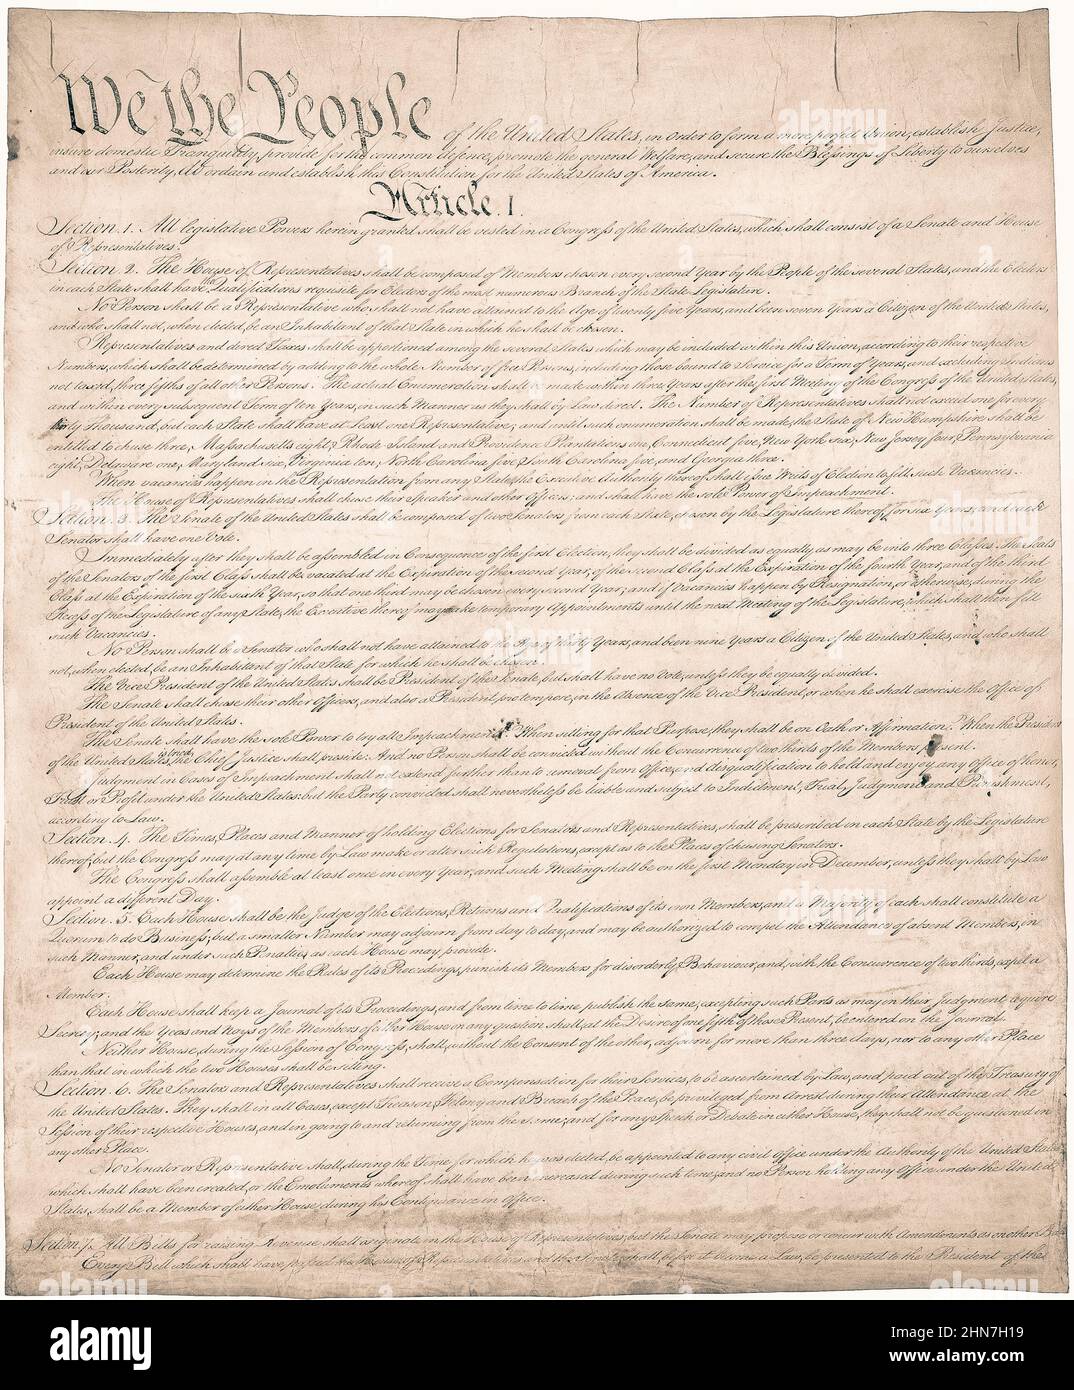 We the People of the United States, in Order to form a more perfect Union, establish Justice,
insure domestic Tranquility, provide for the common defence, promote the general Welfare, and secure the Blessings of Liberty to ourselves
and our Posterity, do ordain and establish this Constitution for the United States of America.
Article. I.
Section. 1. All legislative Powers herein granted shall be vested in a Congress of the United States, which shall consist of a Senate and House
of Representatives.
Section. 2. The House of Representatives shall be composed of Members chosen every second Year by the People of the several States, and the Electors
in each State shall have the Qualifications requisite for Electors of the most numerous Branch of the State Legislature.
No Person shall be a Representative who shall not have attained to the Age of twenty five Years, and been seven Years a Citizen of the United States,
and who shall not, when elected, be an Inhabitant of that State in which he shall be chosen.
Representatives and direct Taxes shall be apportioned among the several States which may be included within this Union, according to their respective
Numbers, which shall be determined by adding to the whole Number of free Persons, including those bound to Service for a Term of Years, and excluding Indians
not taxed, three fifths of all other Persons. The actual Enumeration shall be made within three Years after the first Meeting of the Congress of the United States,
and within every subsequent Term of ten Years, in such Manner as they shall by Law direct. The Number of Representatives shall not exceed one for every
thirty Thousand, but each State shall have at Least one Representative; and until such enumeration shall be made, the State of New Hampshire shall be
entitled to chuse three, Massachusetts eight, Rhode Island and Providence Plantations one, Connecticut five, New York six, New Jersey four, Pennsylvania
eight, Delaware one, Maryland six, Virginia ten, North Carolina five, South Carolina five, and Georgia three.
When vacancies happen in the Representation from any State, the Executive Authority thereof shall issue Writs of Election to fill such Vacancies.
The House of Representatives shall chuse their Speaker and other Officers; and shall have the sole Power of Impeachment.
Section. 3. The Senate of the United States shall be composed of two Senators from each State, chosen by the Legislature thereof, for six Years; and each
Senator shall have one Vote.
Immediately after they shall be assembled in Consequence of the first Election, they shall be divided as equally as may be into three Classes. The Seats
of the Senators of the first Class shall be vacated at the Expiration of the second Year, of the second Class at the Expiration of the fourth Year, and of the third
Class at the Expiration of the sixth Year, so that one third may be chosen every second Year; and if Vacancies happen by Resignation, or otherwise, during the
Recess of the Legislature of any State, the Executive thereof may make temporary Appointments until the next Meeting of the Legislature, which shall then fill
such Vacancies.
No Person shall be a Senator who shall not have attained to the Age of thirty Years, and been nine Years a Citizen of the United States, and who shall
not, when elected, be an Inhabitant of that State for which he shall be chosen.
The Vice President of the United States shall be President of the Senate, but shall have no Vote, unless they be equally divided.
The Senate shall chuse their other Officers, and also a President pro tempore, in the Absence of the Vice President, or when he shall exercise the Office of
President of the United States.
The Senate shall have the sole Power to try all Impeachments. When sitting for that Purpose, they shall be on Oath or Affirmation. When the President
of the United States is tried, the Chief Justice shall preside: And no Person shall be convicted without the Concurrence of two thirds of the Members present.
Judgment in Cases of Impeachment shall not extend further than to removal from Office, and disqualification to hold and enjoy any Office of honor,
Trust or Profit under the United States: but the Party convicted shall nevertheless be liable and subject to Indictment, Trial, Judgment and Punishment,
according to Law.
Section. 4. The Times, Places and Manner of holding Elections for Senators and Representatives, shall be prescribed in each State by the Legislature
thereof; but the Congress may at any time by Law make or alter such Regulations, except as to the Places of chusing Senators.
The Congress shall assemble at least once in every Year, and such Meeting shall be on the first Monday in December, unless they shall by Law
appoint a different Day.
Section. 5. Each House shall be the Judge of the Elections, Returns and Qualifications of its own Members, and a Majority of each shall constitute a
Quorum to do Business; but a smaller Number may adjourn from day to day, and may be authorized to compel the Attendance of absent Members, in
such Manner, and under such Penalties as each House may provide.
Each House may determine the Rules of its Proceedings, punish its Members for disorderly Behaviour, and, with the Concurrence of two thirds, expel a
Member.
Each House shall keep a Journal of its Proceedings, and from time to time publish the same, excepting such Parts as may in their Judgment require
Secrecy; and the Yeas and Nays of the Members of either House on any question shall, at the Desire of one fifth of those Present, be entered on the Journal.
Neither House, during the Session of Congress, shall, without the Consent of the other, adjourn for more than three days, nor to any other Place
than that in which the two Houses shall be sitting.
Section. 6. The Senators and Representatives shall receive a Compensation for their Services, to be ascertained by Law, and paid out of the Treasury of
the United States. They shall in all Cases, except Treason, Felony and Breach of the Peace, be privileged from Arrest during their Attendance at the
Session of their respective Houses, and in going to and returning from the same; and for any Speech or Debate in either House, they shall not be questioned in
any other Place.
No Senator or Representative shall, during the Time for which he was elected, be appointed to any civil Office under the Authority of the United States,
which shall have been created, or the Emoluments whereof shall have been encreased during such time; and no Person holding any Office under the United
States, shall be a Member of either House during his Continuance in Office.
Section. 7. All Bills for raising Revenue shall originate in the House of Representatives; but the Senate may propose or concur with Amendments as on other Bills.
Every Bill which shall have passed the House of Representatives and the Senate, shall, before it become a Law, be presented to the President of the
alamy
Image ID: 2HN7H19
www.alamy.com